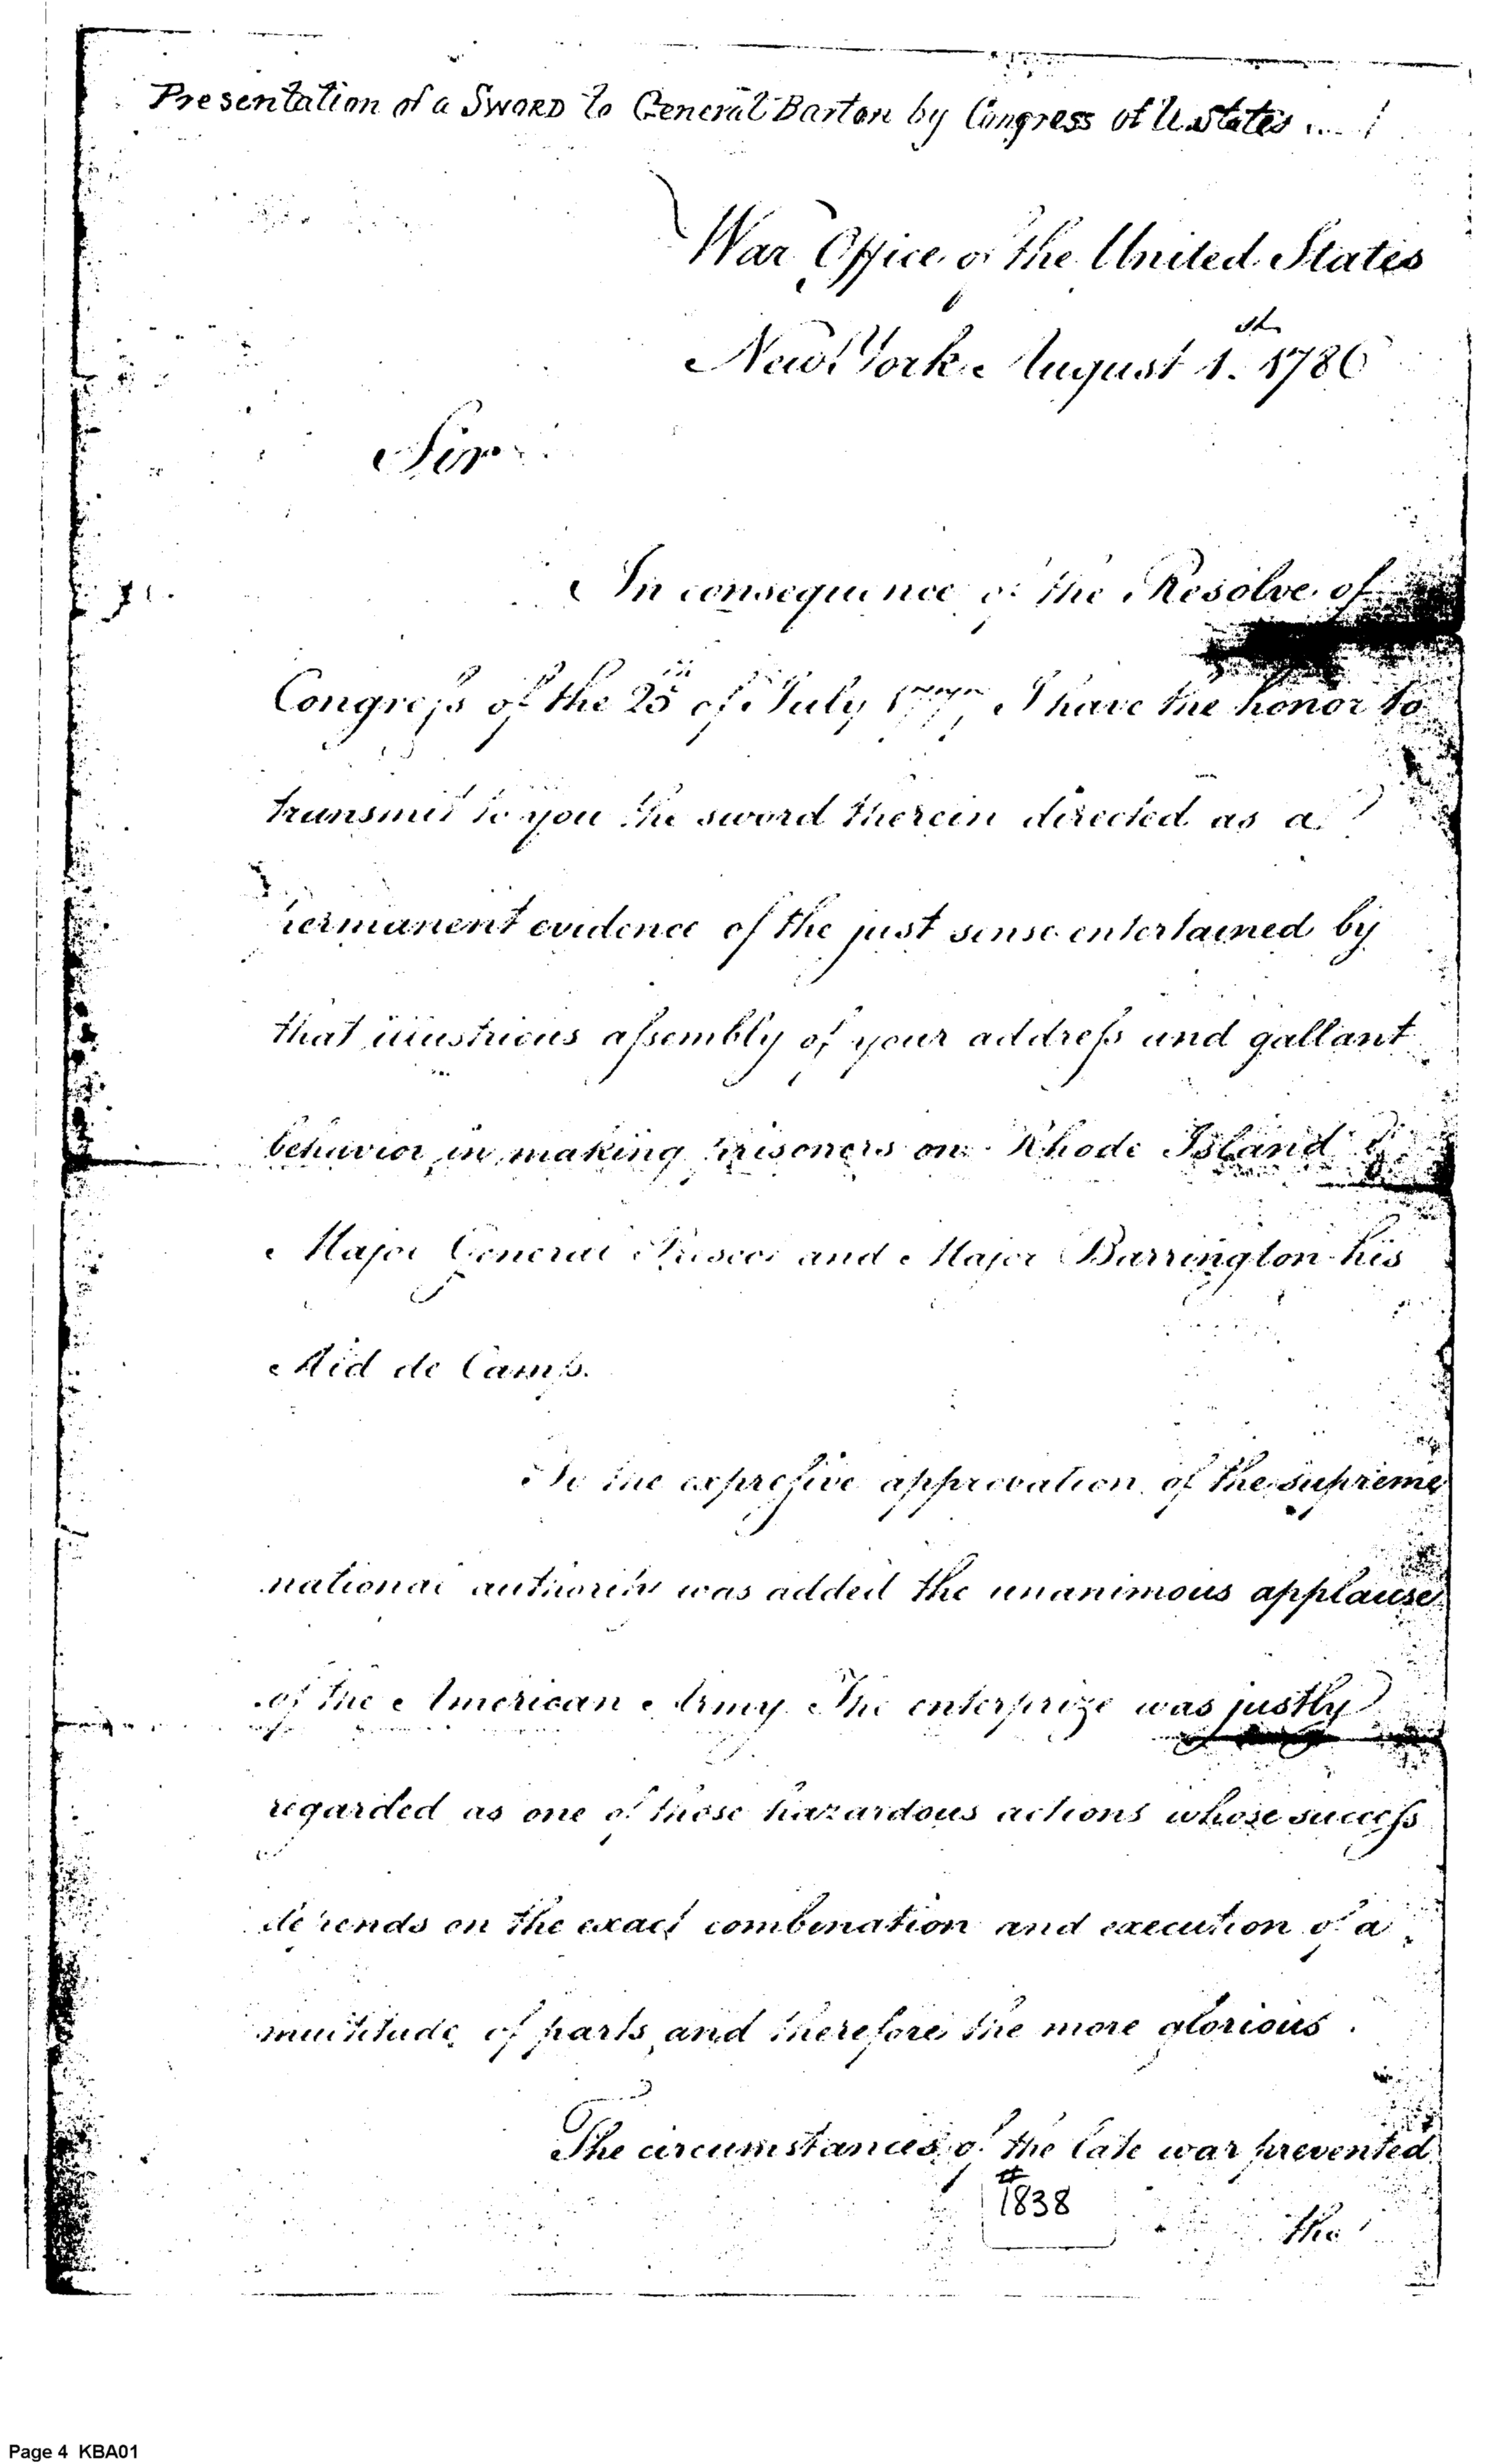 Presentation of a SWORD to General Barton by Congress of U. States .... 1
War Office of the United States
New York August 1.st 1786
Sir
In consequence of the Resolve of
Congress of the 25th of July 1777, I have the honor to
transmit to you the sword therein directed as a
permanent evidence of the just sense entertained by
that illustrious assembly of your address and gallant
behavior in making prisoners on Rhode Island
Major General Prescot and Major Barrington his
Aid de Camp.
To the expressive approbation of the supreme
national authority was added the unanimous applause
of the American Army. The enterprize was justly
regarded as one of those hazardous actions whose success
depends on the exact combination and execution of a
multitude of parts, and therefore the more glorious.
The circumstances of the late war prevented
# 1838
the
Page 4 KBA01